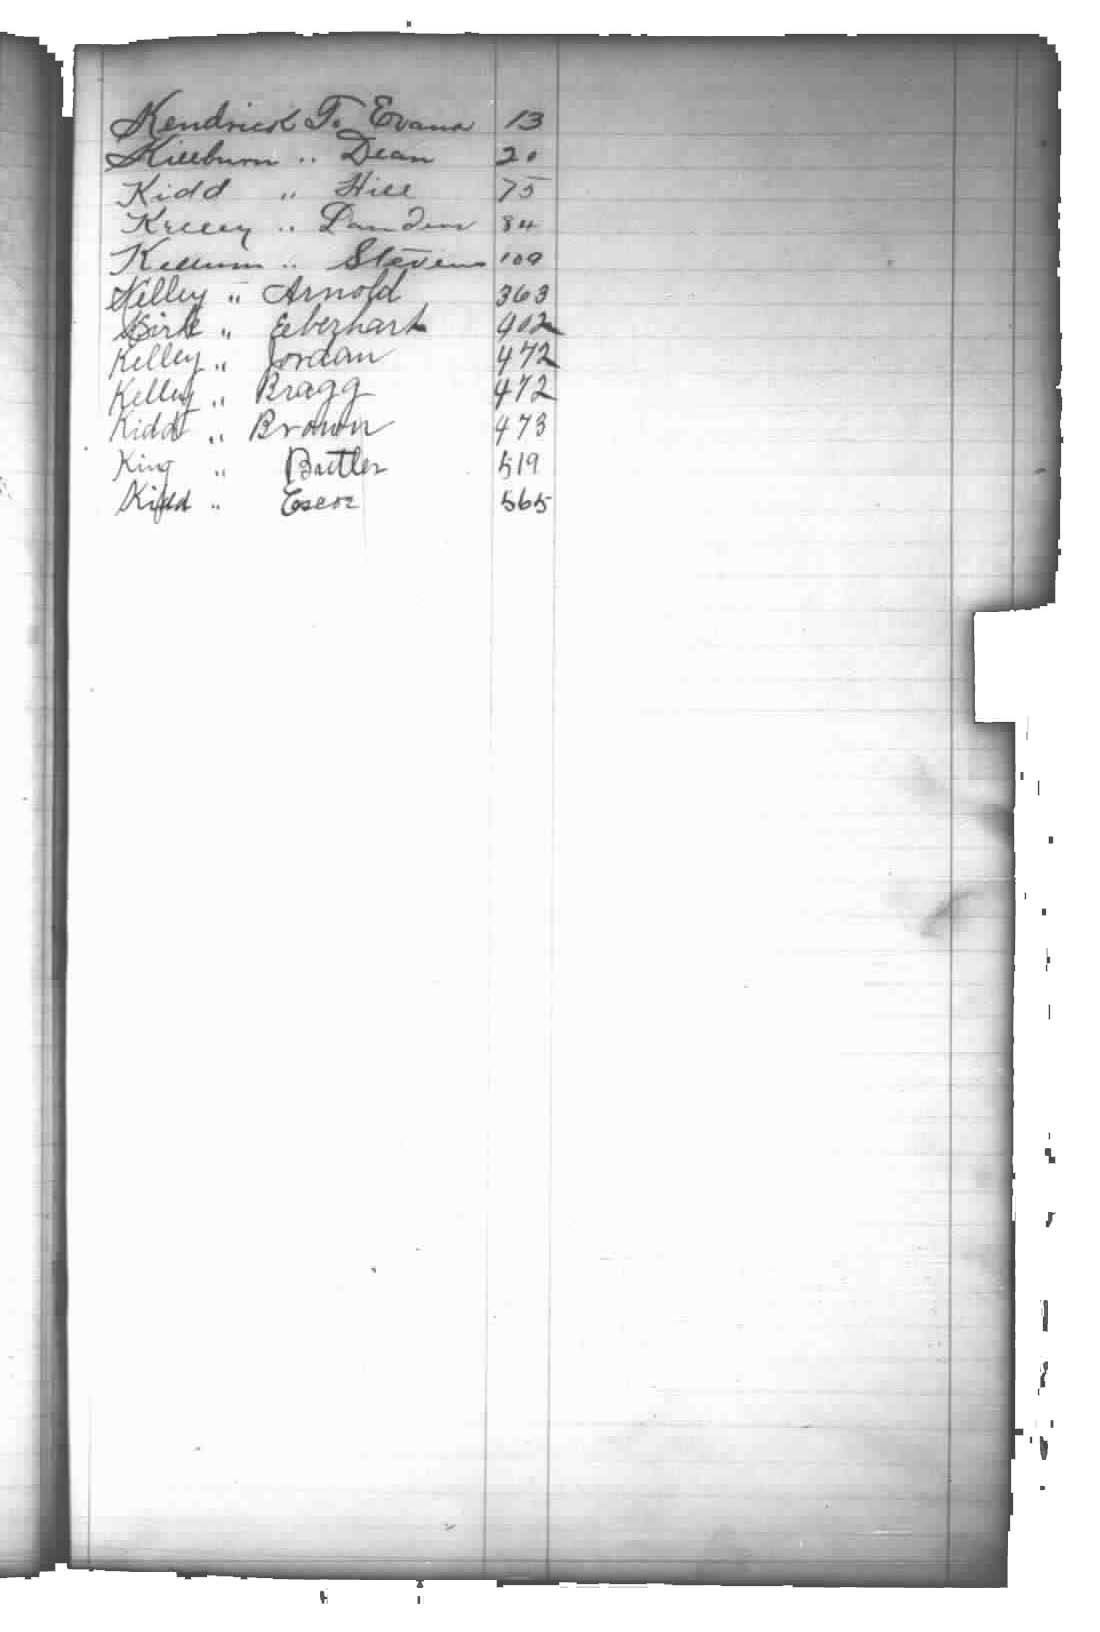 Kendrick To Evans 13
Killburn " Dean 20
Kidd " Hill 75
Kelley " 84
Kellum " Stevens 109
Kelley " Arnold 363
Kirk " Eberhart 402
Kelley " Jordan 472
Kelley " Bragg 472
Kidd " Brown 473
King " Butler 519
Kidd " 565